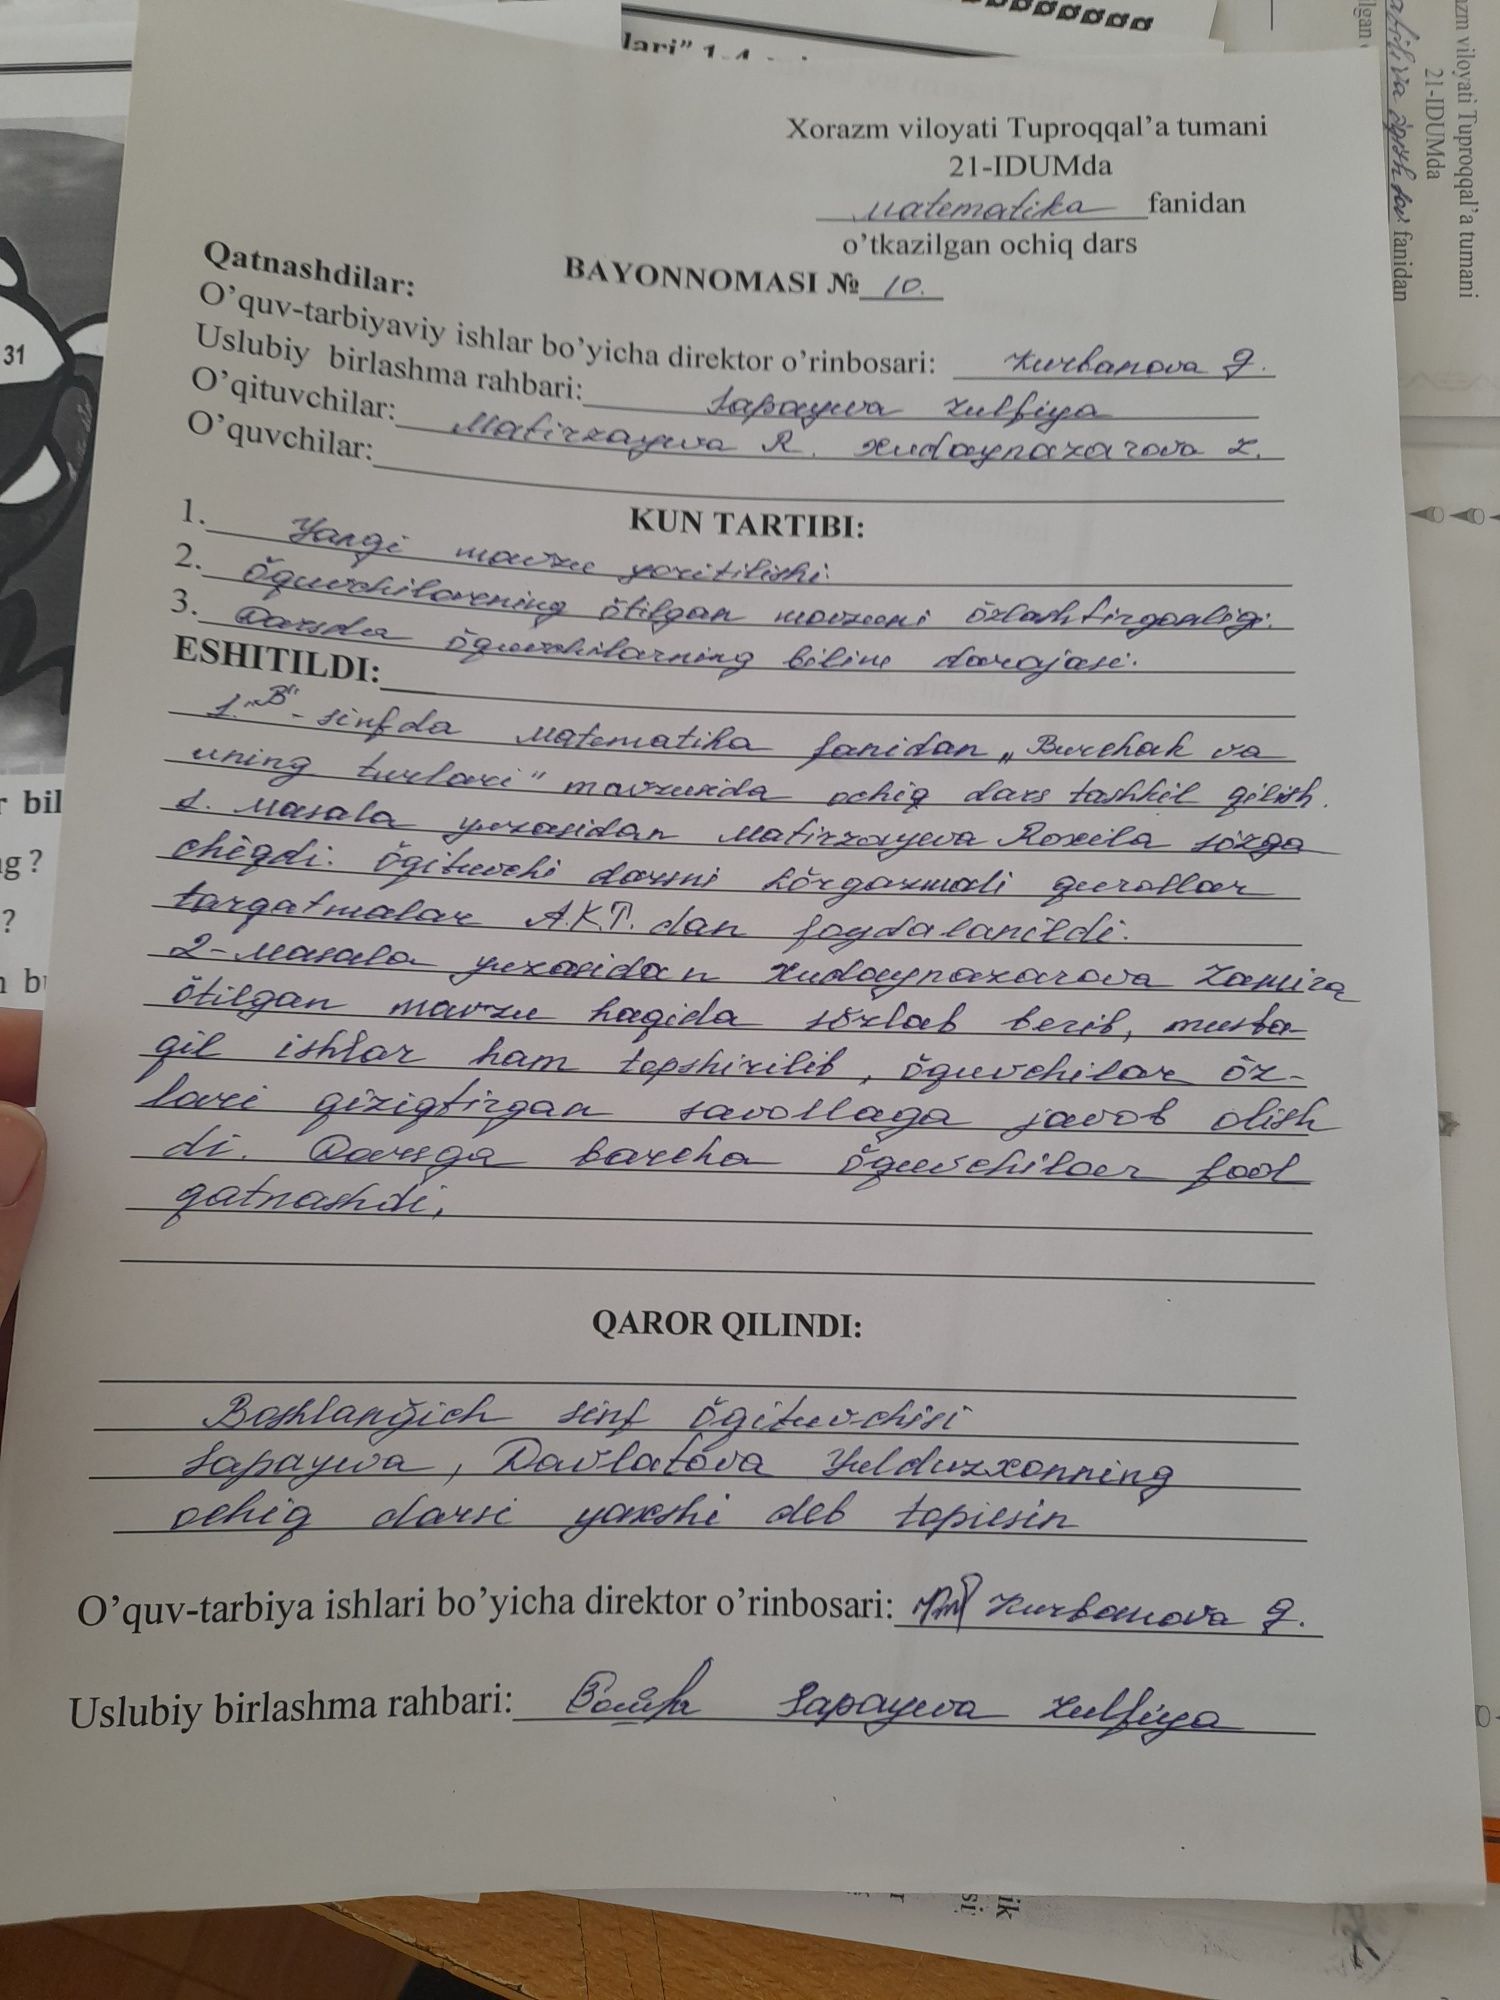 lari" 1-4
Xorazm viloyati Tuproqqal'a tumani
21-IDUMda
Matematika fanidan
o'tkazilgan ochiq dars
BAYONNOMASI № 10.
Qatnashdilar:
O'quv-tarbiyaviy ishlar bo'yicha direktor o'rinbosari: Kurbanova G.
Uslubiy birlashma rahbari: Sapayeva Zulfiya
O'qituvchilar: Matirzayeva R. Xudaynazarova Z.
O'quvchilar:
KUN TARTIBI:
1. Yangi mavzu yoritilishi.
2. Õquvchilarning õtilgan mavzuni õzlashtirganligi.
3. Darsda õquvchilarning bilim darajasi.
ESHITILDI:
1-"B"-sinfda Matematika fanidan „Burchak va
uning turlari" mavzusida ochiq dars tashkil qilish.
1. Masala yuzasidan Matirzayeva Roxila sõzga
chiqdi. Õqituvchi darsni kõrgazmali qurollar
tarqatmalar A.K.T. dan foydalanildi.
2-Masala yuzasidan Xudaynazarova Zamira
õtilgan mavzu haqida sõzlab berib, musta-
qil ishlar ham topshirilib, õquvchilar õz-
lari qiziqtirgan savollaga javob olish
di. Darsga barcha õquvchilar faol
qatnashdi.
QAROR QILINDI:
Boshlanğich sinf õqituvchisi
Sapayeva, Davlatova Yulduzxonning
ochiq darsi yaxshi deb topilsin
O'quv-tarbiya ishlari bo'yicha direktor o'rinbosari: Kurbanova G.
Uslubiy birlashma rahbari: Sapayeva Zulfiya
31
r bil
g?
?
n b
azm viloyati Tuproqqal'a tumani
21-IDUMda
fanidan
lgan
ik
si
r